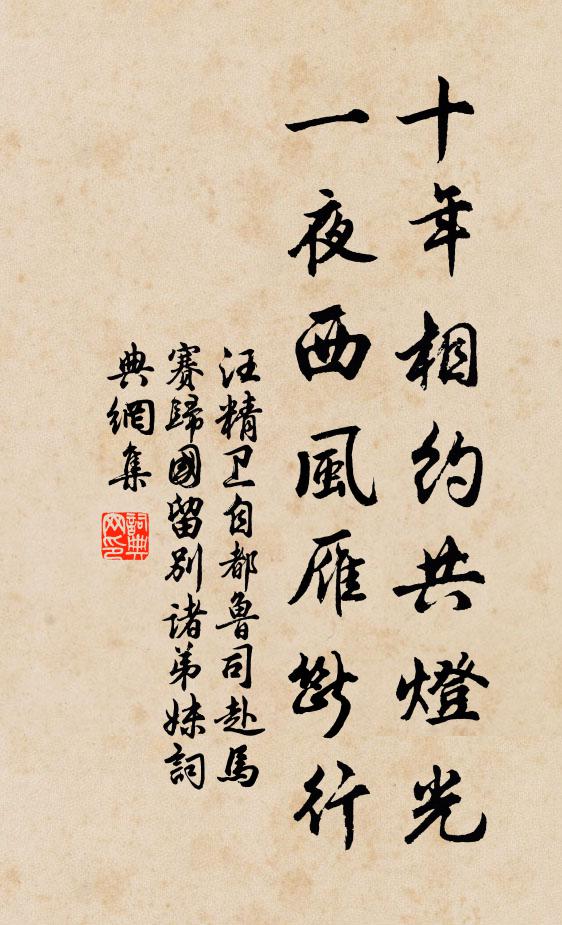 十年相約共燈光
一夜西風雁斷行
汪精卫自都魯司赴馬
賽歸國留別諸弟妹詞
典網集
詞典网印